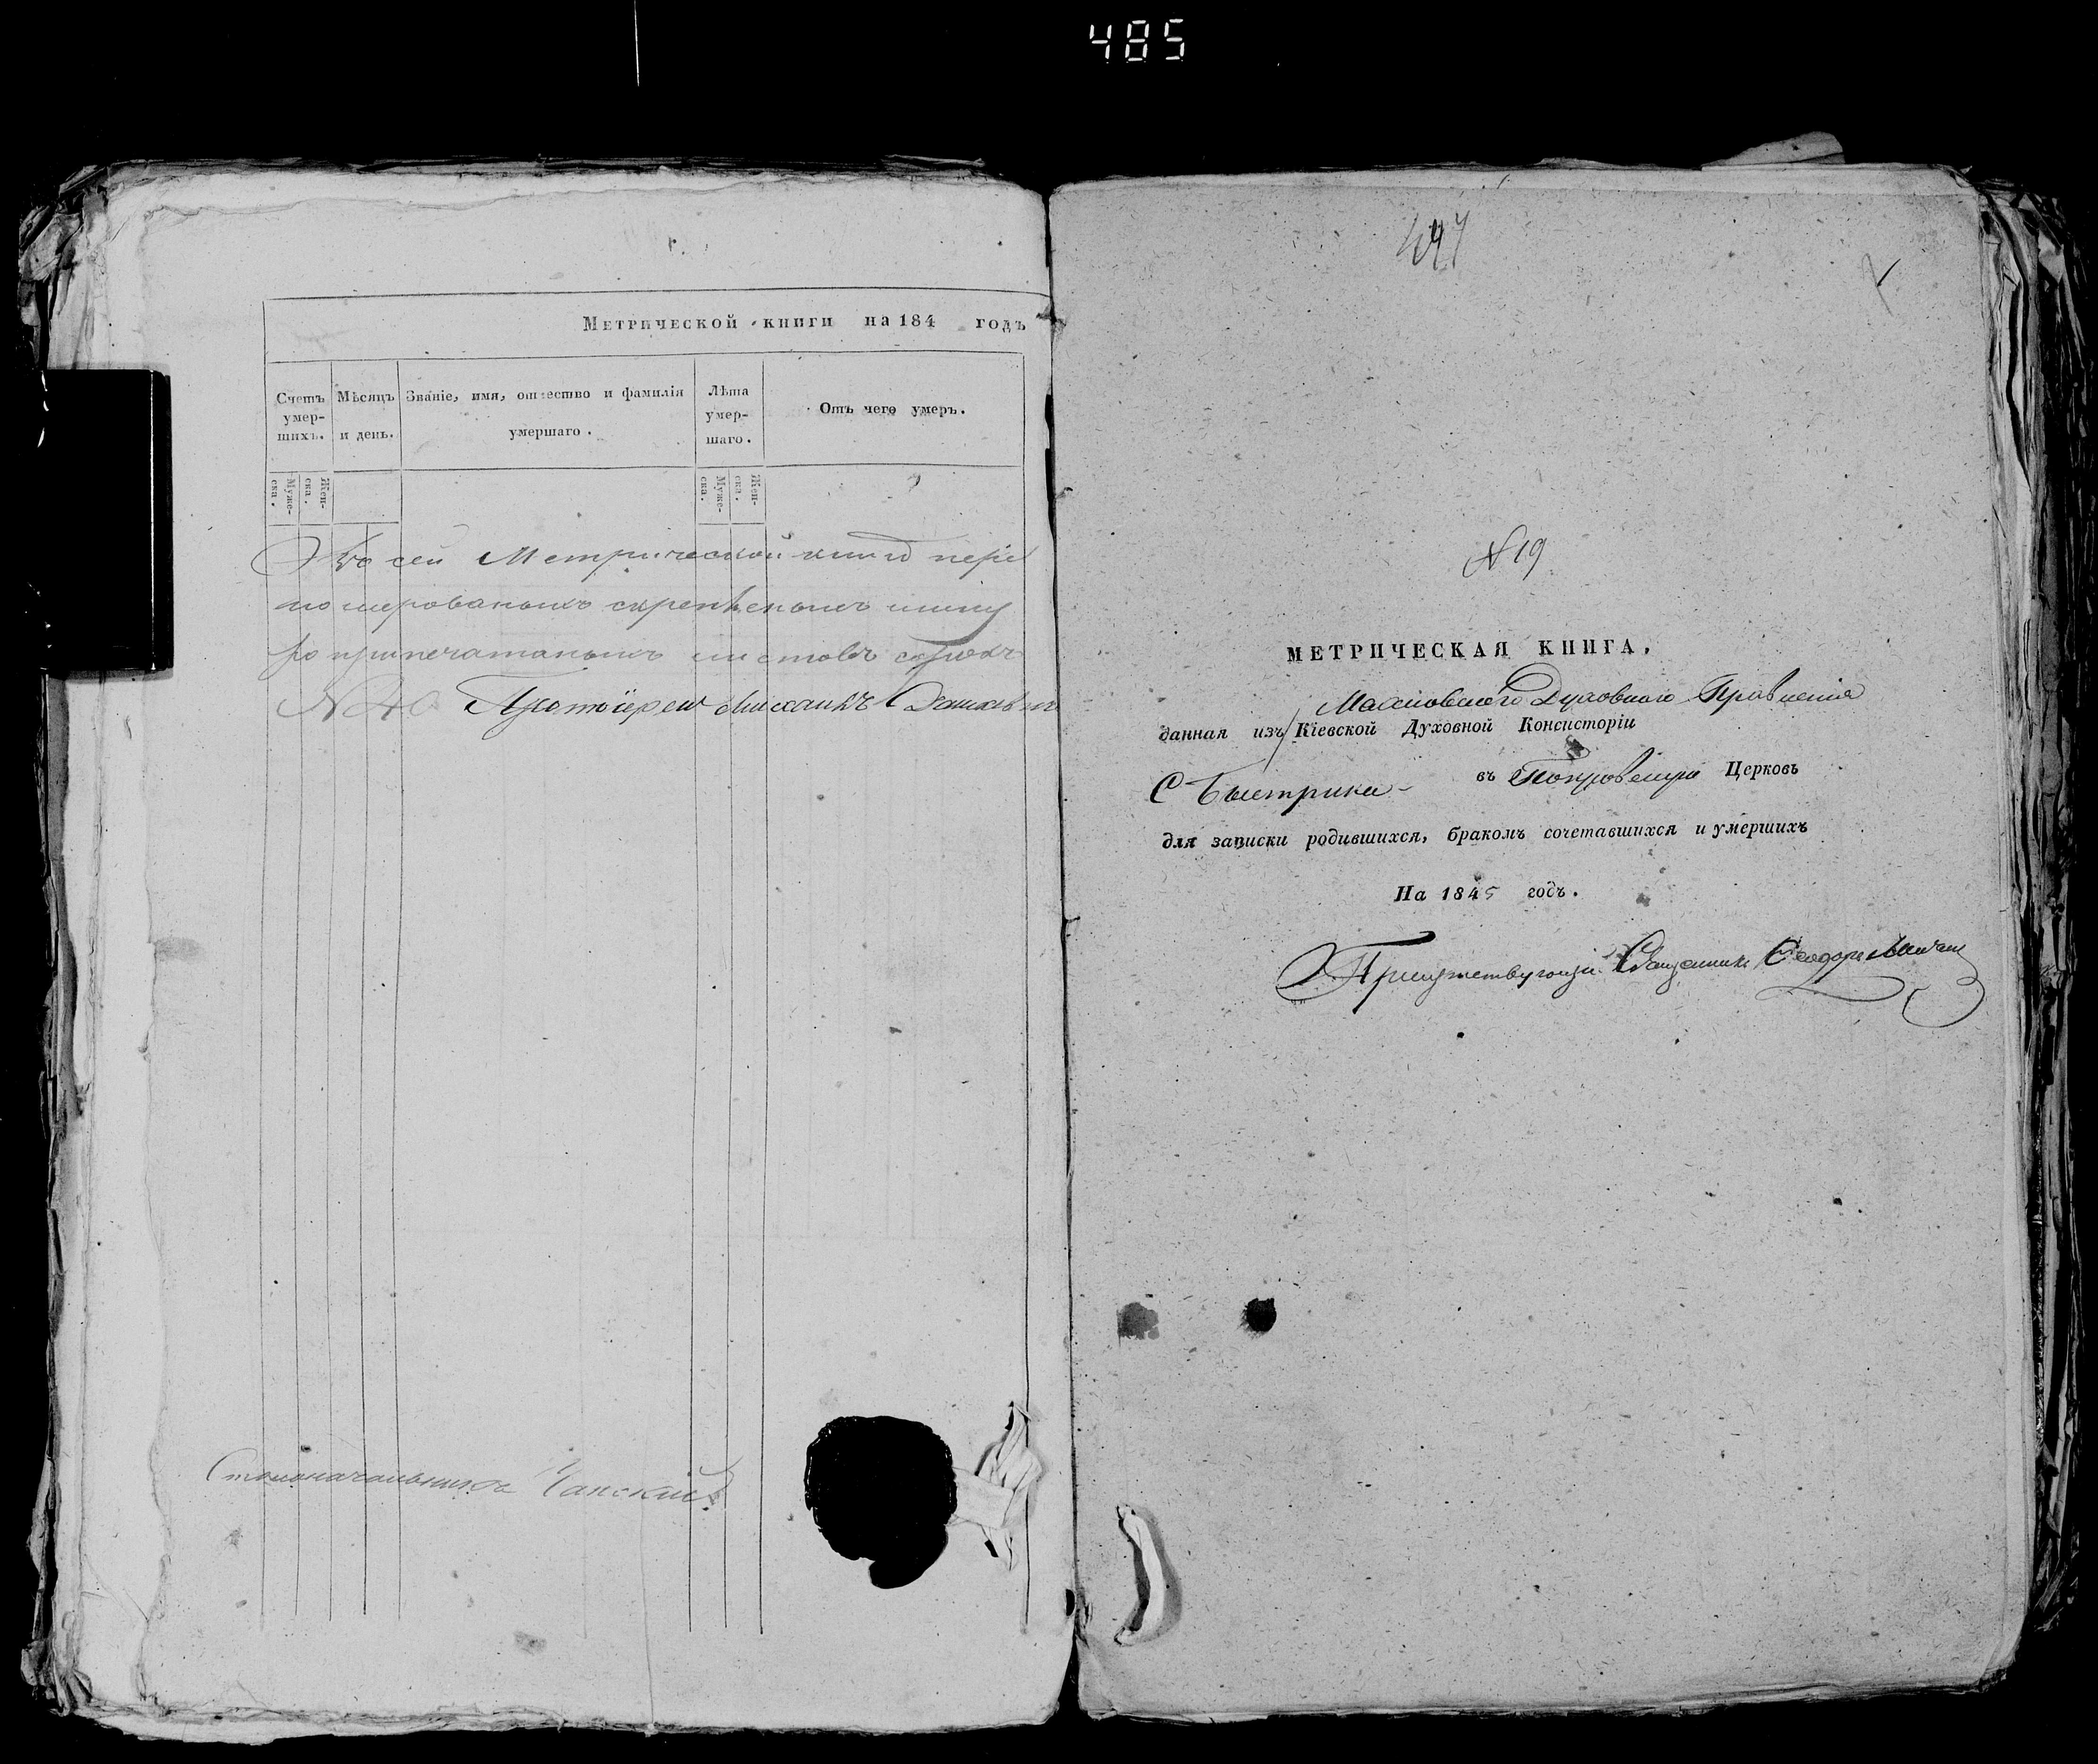 485
Метрической книги на 184 годъ
Счетъ умер-шихъ.
Мѣсяцъ и день.
Званіе, имя, отчество и фамилія умершаго.
Лѣта умер-шаго.
Отъ чего умеръ.
Муже-ска.
Жен-ска.
Муже-ска.
Жен-ска.
Въ сей Метрической книгѣ пере
номерованныхъ скрепленныхъ шну
ро припечатанныхъ листовъ сорокъ
№ 40 Протоіерей Михаилъ
Столоначальникъ
№ 19
МЕТРИЧЕСКАЯ КНИГА,
Махновского Духовного Правленія
данная изъ Кіевской Духовной Консисторіи
С Быстрика - въ Покровскую Церковь
для записки родившихся, бракомъ сочетавшихся и умершихъ
На 1845 годъ.
Присутствующій Священникъ Феодоръ